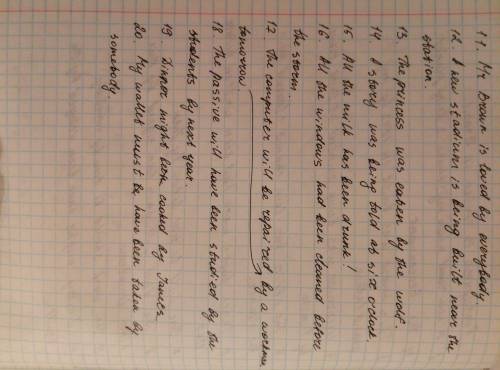 11. Mr Brown is loved by everybody.
12. A new stadium is being built near the
station.
13. The princess was eaben by the wolf.
14. A story was being told at six o'clock.
15. All the milk has been drunk!
16. All the windows had been cleaned before
the storm.
17. The computer will be repaired by a workman
tomorrow
18. The passive will have been studied by the
students by next year.
19. Dinner might been cooked by James
20. My wallet must be have been taken by
somebody